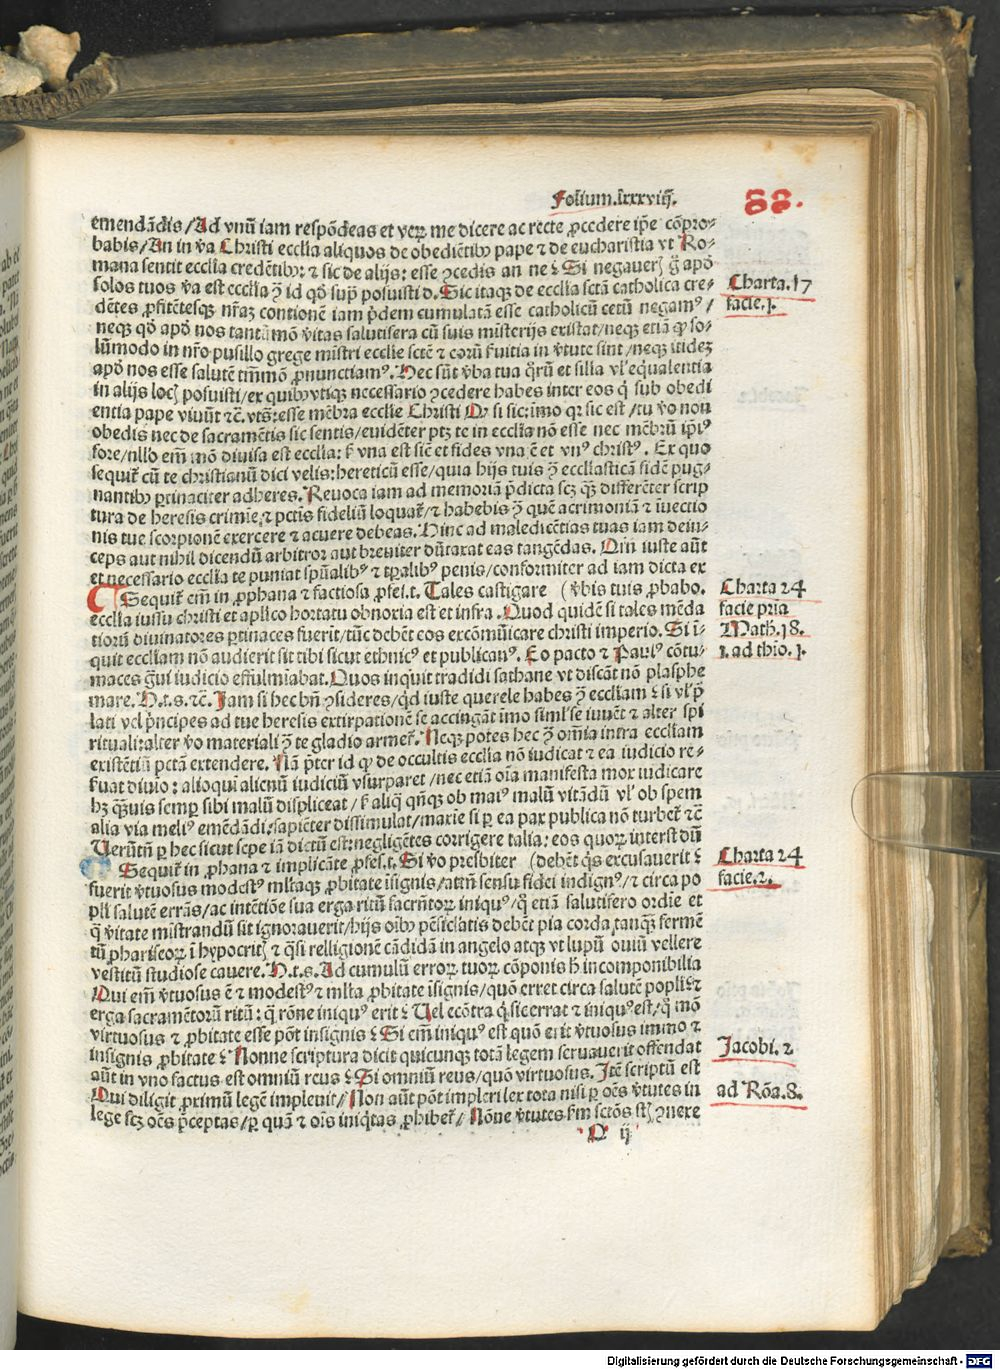 Folium.lxxxviij.
88.
emendādis/Ad vnū iam respōdeas et veꝝ me dicere ac recte ꝓcedere ip̄e cōpro-
babis/An in v̄a Christi eccl̄ia aliquos de obediētibꝰ pape ⁊ de eucharistia vt Ro-
mana sentit eccl̄ia credētibꝰ: ⁊ sic de alijs: esse ꝯcedis an ne? Si negaueris g̊ apď
solos tuos v̄a est eccl̄ia ꝙ̄ id qď sup̄ posuisti d. Sic itaqꝫ de eccl̄ia sctā catholica cre-
dētes ꝓfitētesqꝫ nr̄aꝫ contionē iam p̄dem cumulatā esse catholicū cetū negamꝰ/
neqꝫ qď apď nos tantūmō v̄itas salutifera cū suis misterijs existat/neqꝫ etiā ꝙ so-
lūmodo in nr̄o pusillo grege mīstri ecclie sctē ⁊ eorū s̄uitia in v̄tute sint/neqꝫ itideꝫ
apď nos esse salutē tm̄mō ꝓnunctiamꝰ. Hec sūt v̄ba tua q̄rū et silia vl̓ equalentia
in alijs locꝭ posuisti/ex quibꝰ vtiqꝫ necessario ꝯcedere habes inter eos q̄ sub obedi
entia pape viuūt ⁊c. vt s̄: esse mēbra ecclie Christi Qꝫ si sic: īmo qꝛ sic est/tu v̄o non
obedis nec de sacramētis sic sentis/euidēter ptꝫ te in eccl̄ia nō esse nec mēbrū ip̄iꝰ
fore/nllo em̄ mō diuisa est eccl̄ia: s̄ vna est sic̄ et fides vna ē et vnꝰ christꝰ. Ex quo
sequit̄ cū te christianū dici velis: hereticū esse/quia hijs tuis ꝯ̄ ecclīasticā fidē pug-
nantibꝰ ꝑtinaciter adheres. Reuoca iam ad memoriā p̄dicta scꝫ qꝫ differēter scrip
tura de heresis crimīe, ⁊ pctīs fideliū loquat̄/ ⁊ habebis ꝯ̄ quē acrimoniā ⁊ īuectio
nis tue scorpionē exercere ⁊ acuere debeas. Hinc ad maledicētias tuas iam dein-
ceps aut nihil dicendū arbitror aut breuiter dūtaxat eas tangēdas. Qm̄ iuste aūt
et necessario eccl̄ia te puniat spūalibꝰ ⁊ tp̄alibꝰ penis/conformiter ad iam dicta ex
Sequit̄ em̄ in ꝓphana ⁊ factiosa ꝓfes.t. Tales castigare (v̄bis tuis ꝓbabo.
eccl̄ia iussu christi et aplico hortatu obnoxia est et infra. Quod quidē si tales mēda
tiorū diuinatores ꝑtinaces fuerit/tūc debēt eos excōmūicare christi imperio. Si ī-
quit eccliam nō audierit sit tibi sicut ethnicꝰ et publicanꝰ. Eo pacto ⁊ Paulꝰ cōtu-
maces ḡui iudicio effulmiabat. Quos inquit tradidi sathane vt discāt nō plasphe
mare. H.t.s. ⁊c. Jam si hec bn̄ ꝯsideres/qd iuste querele habes ꝯ̄ eccliam? si vl̓ p̄
lati vel p̄ncipes ad tue heresis extirpationē se accingāt īmo siml̓ se iuuēt ⁊ alter spi
rituali: alter v̄o materiali ꝯ̄ te gladio armet̄. Neqꝫ potes hec ꝯ̄ om̄ia intra eccliam
existētiū pctā extendere. Nā p̄ter id ꝙ de occultis eccl̄ia nō iudicat ⁊ ea iudicio re-
s̄uat diuio: alioqui alienū iudiciū vsurparet/nec etiā oīa manifesta mox iudicare
hꝫ qꝫuis semꝑ sibi malū displiceat/ s̄ aliq̄ qn̄qꝫ ob maiꝰ malū vitādū vl̓ ob spem
alia via meliꝰ emēdādi: sapiēter dissimulat/maxīe si ꝑ ea pax publica nō turbet̄ ⁊c
Uerūtn̄ ꝑ hec sicut sepe iā dictū est: negligētes corrigere talia: eos quoꝝ interst̄ dū
Sequit̄ in ꝓphana ⁊ implicāte ꝓfes.t. Si v̄o presbiter (debēt q̄s excusauerit?
fuerit v̄tuosus modestꝰ mltaqꝫ ꝓbitate īsignis/attn̄ sensu fidei indignꝰ/⁊ circa po
pli salutē errās/ac intētiōe sua erga ritū sacrn̄torꝝ iniquꝰ/q̄ etiā salutifero ordīe et
q̄ v̄itate mīstrandū sit ignorauerit/hijs oībꝰ pēsiclatis debēt pia corda tanqꝫ fermē
tū phariseoꝝ ī hypocritꝭ ⁊ q̄si relligionē cādidā in angelo atqꝫ vt lupū ouiū vellere
vestitū studiose cauere. H.t.s. Ad cumulū erroꝝ tuoꝝ cōponis h̄ incomponibilia
Qui em̄ v̄tuosus ē ⁊ modestꝰ ⁊ mlta ꝓbitate īsignis/quō erret circa salutē popli? ⁊
erga sacramētorū ritū: q̄ rōne iniquꝰ erit? Uel ecōtra q̄ sic errat ⁊ iniquꝰ est/q̄ mō
virtuosus ⁊ ꝓbitate esse pōt insignis? Si em̄ iniquꝰ est quō erit v̄tuosus immo ⁊
insignis ꝓbitate? Nonne scriptura dicit quicunqꝫ totā legem seruauerit offendat
aūt in vno factus est omniū reus? Si omniū reus/quō virtuosus. Itē scriptū est
Qui diligit ꝓximū legē impleuit/Non aūt pōt impleri lex tota nisi ꝑ oēs v̄tutes in
lege scꝫ oēs p̄ceptas/ꝑ quā ⁊ oīs iniq̄tas ꝓhibet̄/ Nōne v̄tutes s̄m sctōs st̄ꝭ ꝯnexe
Q ij
Charta.17
facie.1.
Charta 24
facie pria
Math.18.
1. ad thio. 1.
Charta 24
facie.2.
Jacobi. 2
ad Rōa.8.
Digitalisierung gefördert durch die Deutsche Forschungsgemeinschaft - DFG